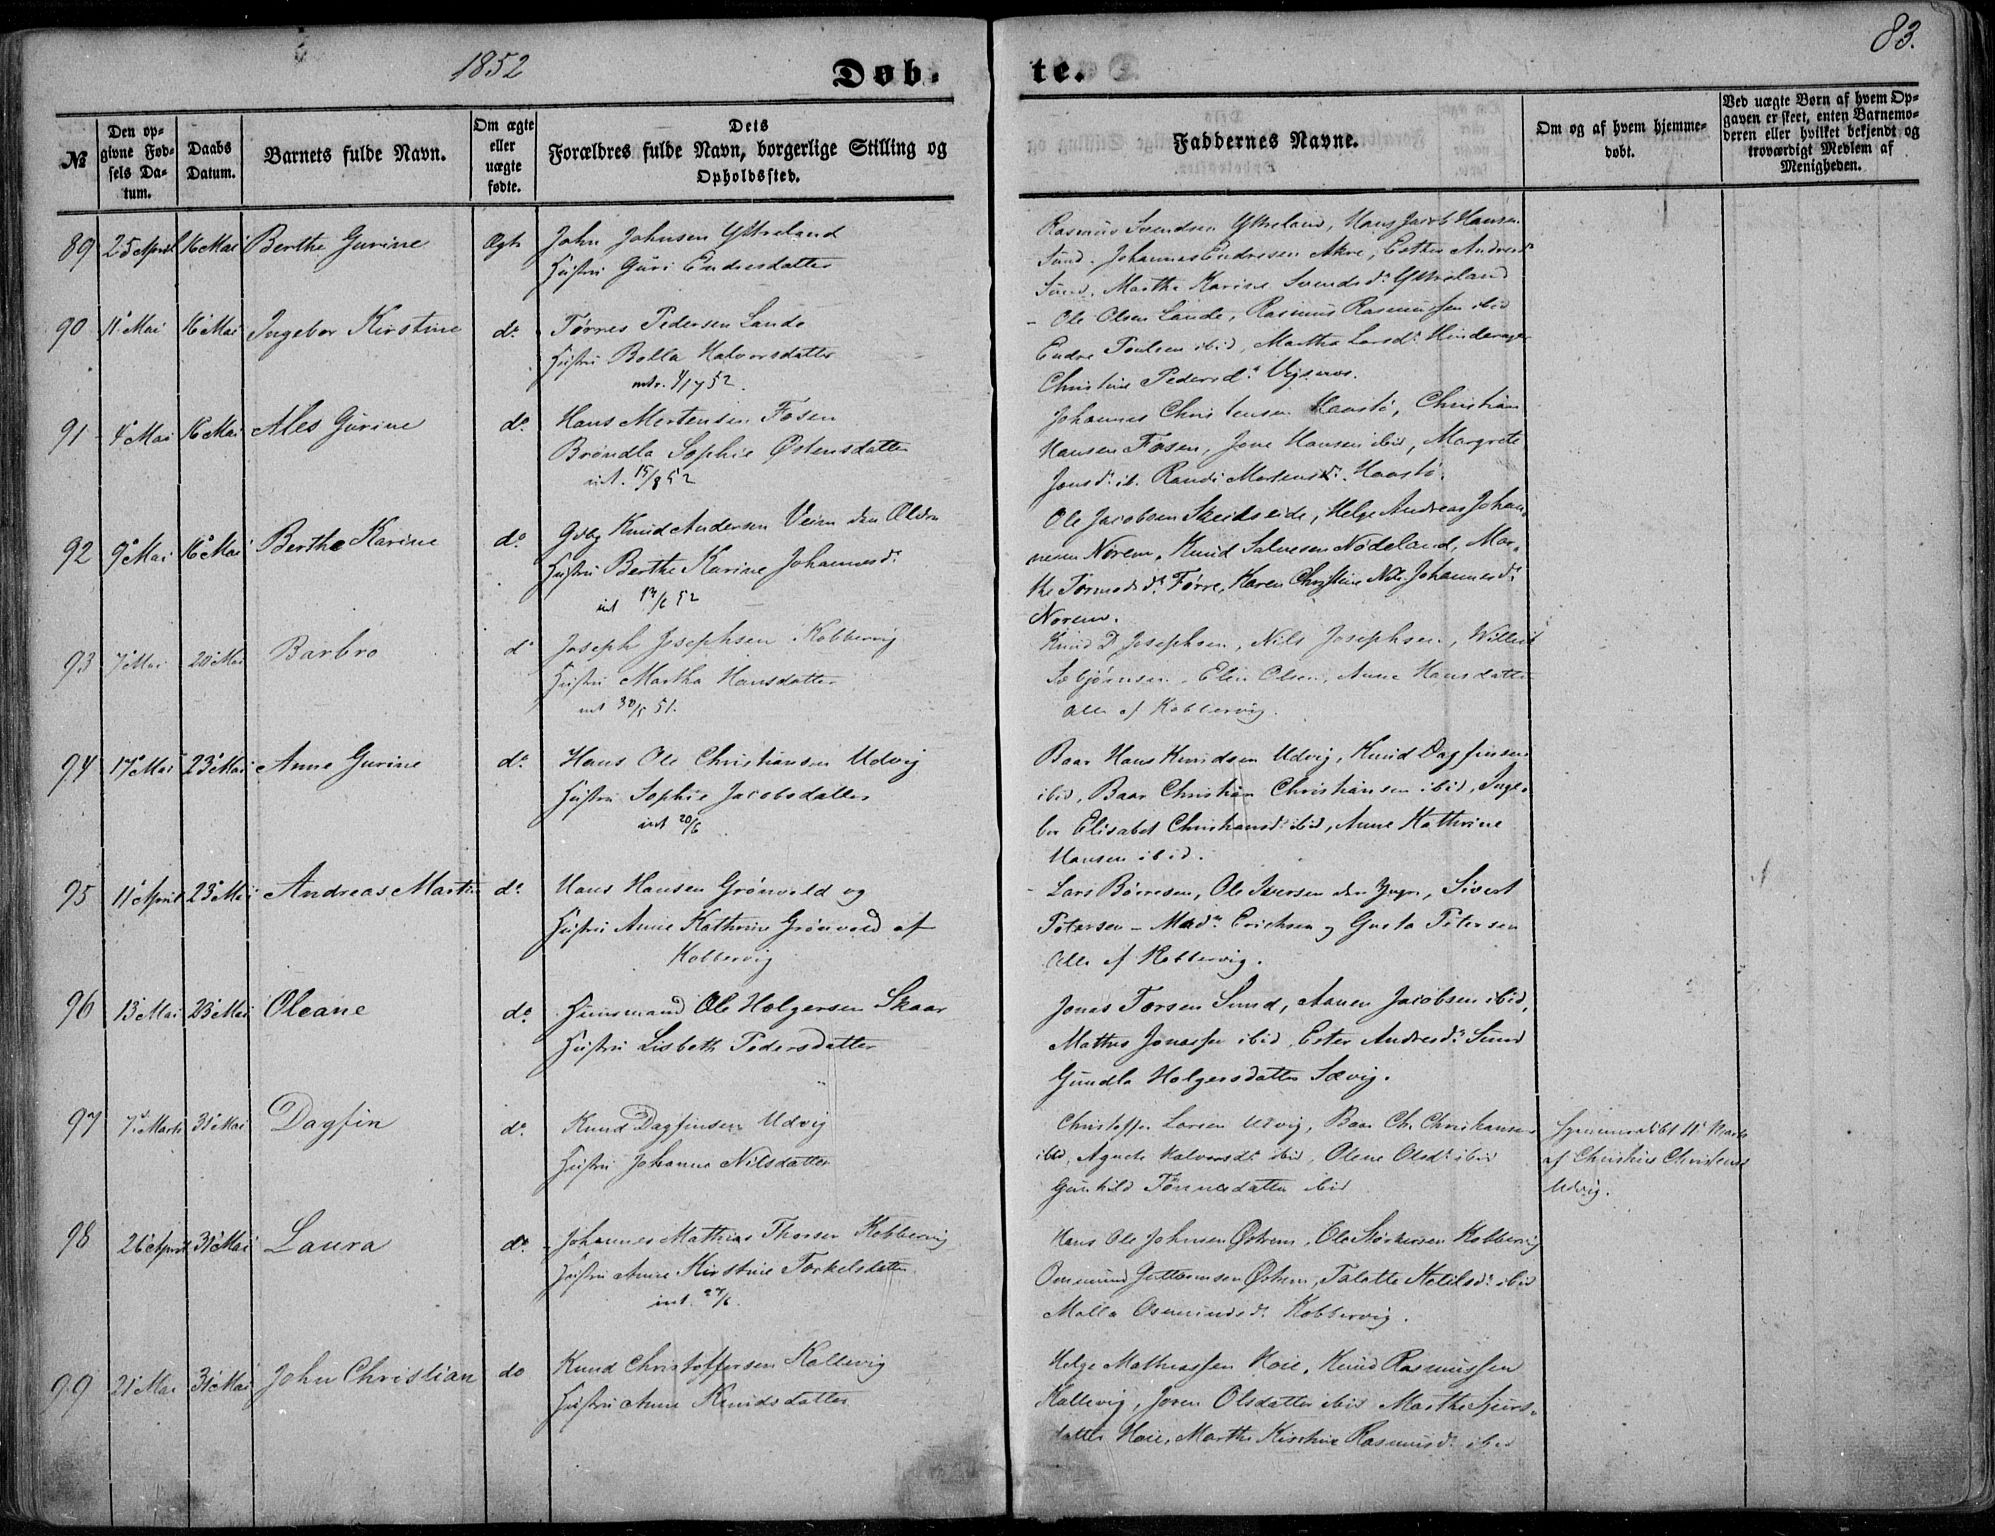 1852
83.
Døb-
te.
№
Den op-
givne Fød-
sels Da-
tum.
Daabs
Datum.
Barnets fulde Navn.
Om ægte
eller
uægte
fødte.
Dets
Forældres fulde Navn, borgerlige Stilling og
Opholdssted.
Faddernes Navne.
Om og af hvem hjemme-
døbt.
Ved uægte Børn af hvem Op-
gaven er skeet, enten Barnemo-
deren eller hvilket bekjendt og
troværdigt Medlem af
Menigheden.
89 25 April 16 Mai Berthe Gurine Ægte John Johnsen Ystreland
Hustru Guri Endresdatter
Rasmus Svendsen Ystreland, Hans Jacob Hansen
Sund. Johannes Endresen Akre, Esther Andresd.
Sund, Martha Karine Svendsd. Ystreland
90 11 Mai 16 Mai Ingebor Kirstine do. Tørres Pedersen Lande
Hustru Bolla Halvorsdatter
Ole Olsen Lande, Rasmus Rasmussen ibid
Endre Poulsen ibid, Martha Larsd. Hinderager
Christine Pedersd.
91 4 Mai 16 Mai Ales Gurine do. Hans Mertensen Fosen
Brøndla Sophie Østensdatter
int. 15/8 52
Johannes Christensen Haastø, Christian
Hansen Fosen, Jone Hansen ibid, Margrete
Jonsd. ib. Randi Mortensd. Haastø.
92 9 Mai 16 Mai Berthe Karine do. Gdbg Knud Andersen Veim den Ældre
Hustru Berthe Karine Johannesd.
int 52
Ole Jacobsen Skeidseide, Helge Andreas Johan-
nesen Norem, Knud Salvesen Nodeland, Mar-
the Tormodsd. Førre, Karen Christine Nils Johannesd.
Norem.
93 7 Mai 20 Mai Barbro do Joseph Josephsen Kobbervig
Hustru Martha Hansdatter
int 30/5 51.
Knud D Josephsen, Nils Josephsen, Willich
Sæbjørnsen, Elen Olsen, Anne Hansdatter
alle af Kobbervig.
94 17 Mai 23 Mai Anne Gurine do. Hans Ole Christiansen Udvig
Hustru Sophie Jacobsdatter
int 20/6
Baar Hans Knudsen Udvig, Knud Dagfinsen
ibid, Baar Christian Christiansen ibid, Inge-
bor Elisabet Christiansd. ibid, Anne Kathrine
Hansen ibid.
95 11 April 23 Mai Andreas Martin do. Hans Hansen Grønvold og
Hustru Anne Kathrine Grønvold af
Kobbervig
Lars Børresen, Ole Iversen den Yngre, Sivert
Petersen – Mad. Erichsen og Gusta Petersen
alle af Kobbervig.
96 13 Mai 23 Mai Oleane do. Huusmand Ole Holgersen Skaar
Hustru Lisbeth Pedersdatter
Jonas Torsen Sund, Aanen Jacobsen ibid,
Mathes Jonassen ibid, Ester Andresd. Sund
Gundla Holgersdatter Sævig.
97 7 Marts 31 Mai Dagfin do. Knud Dagfinsen Udvig
Hustru Johanne Nilsdatter
Christoffer Larsen Udvig, Baar Ch. Christiansen
ibid, Agnete Halvorsd. ibid, Olene Olsd. ibid
Gunhild Tønnesdatter ibid
Hjemmedøbt 11 Marts
af Christine Christensd.
Udvig.
98 26 April 31 Mai Laura do. Johannes Mathias Thorsen Kobbervig
Hustru Anne Kirstine Torkelsdatter
int. 27/6.
Hans Ole Johnsen Østrem, Ole Størkersen Kobbervig
Osmund Guttormsen Østrem, Talette Ketilsd. ibid
Malla Osmundsd. Kobbervig.
99 21 Mai 31 Mai John Christian do Knud Christoffersen Kallevig
Hustru Anne Knudsdatter
Helge Mathiassen Hoie, Knud Rasmussen
Kallevig, Joren Olsdatter ibid Marthe Sjurs-
datter Hoie, Marthe Kirstine Rasmusd. ibid